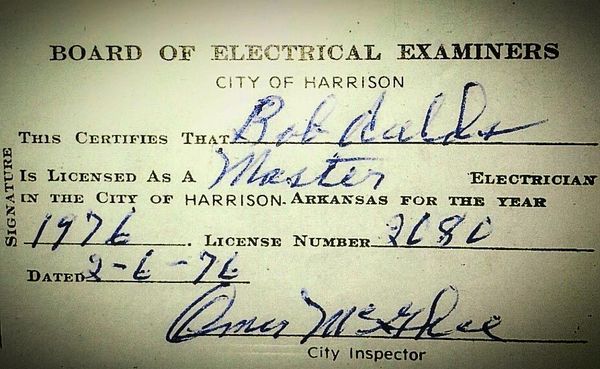 BOARD OF ELECTRICAL EXAMINERS
CITY OF HARRISON
THIS CERTIFIES THAT Bob
IS LICENSED AS A Master ELECTRICIAN
IN THE CITY OF HARRISON ARKANSAS FOR THE YEAR
1976. LICENSE NUMBER 2680
DATED 2-6-76
Omer McGhee
City Inspector
SIGNATURE